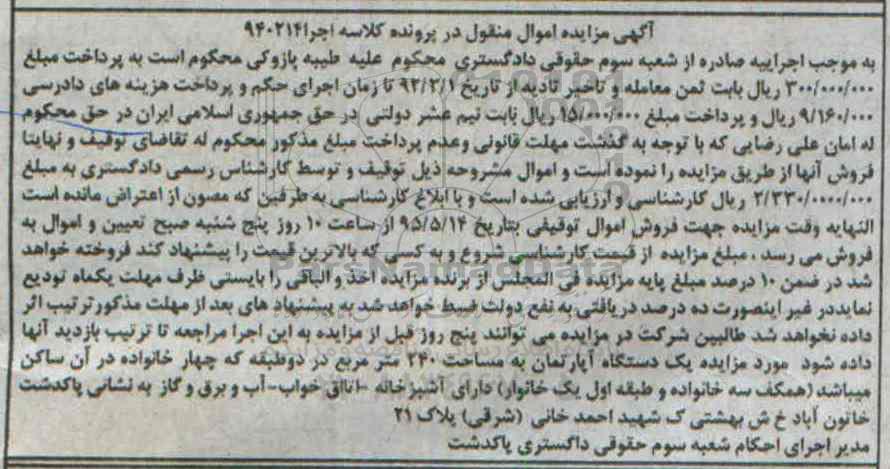 آگهی مزایده اموال منقول در پرونده کلاسه اجرا ۹۴۰۲۱۴
به موجب اجراییه صادره از شعبه سوم حقوقی دادگستری محکوم علیه طیبه پازوکی محکوم است به پرداخت مبلغ
۳۰۰/۰۰۰/۰۰۰ ریال بابت ثمن معامله و تاخیر تادیه از تاریخ ۹۲/۳/۱ تا زمان اجرای حکم و پرداخت هزینه های دادرسی
۹/۱۶۰/۰۰۰ ریال و پرداخت مبلغ ۱۵/۰۰۰/۰۰۰ ریال بابت نیم عشر دولتی در حق جمهوری اسلامی ایران در حق محکوم
له امان علی رضایی که با توجه به گذشت مهلت قانونی وعدم پرداخت مبلغ مذکور محکوم له تقاضای توقیف و نهایتا
فروش آنها از طریق مزایده را نموده است و اموال مشروحه ذیل توقیف و توسط کارشناس رسمی دادگستری به مبلغ
۲/۳۳۰/۰۰۰۰/۰۰۰ ریال کارشناسی و ارزیابی شده است و با ابلاغ کارشناسی به طرفین که مصون از اعتراض مانده است
النهایه وقت مزایده جهت فروش اموال توقیفی بتاریخ ۹۵/۵/۱۴ از ساعت ۱۰ روز پنج شنبه صبح تعیین و اموال به
فروش می رسد ، مبلغ مزایده از قیمت کارشناسی شروع و به کسی که بالاترین قیمت را پیشنهاد کند فروخته خواهد
شد در ضمن ۱۰ درصد مبلغ پایه مزایده فی المجلس از برنده مزایده اخذ و الباقی را بایستی ظرف مهلت یکماه تودیع
نمایددر غیر اینصورت ده درصد دریافتی به نفع دولت ضبط خواهد شد به پیشنهاد های بعد از مهلت مذکورترتیب اثر
داده نخواهد شد طالبین شرکت در مزایده می توانند پنج روز قبل از مزایده به این اجرا مراجعه تا ترتیب بازدید آنها
داده شود مورد مزایده یک دستگاه آپارتمان به مساحت ۲۴۰ متر مربع در دوطبقه که چهار خانواده در آن ساکن
میباشد (همکف سه خانواده و طبقه اول یک خانوار) دارای آشپزخانه -اتاق خواب-آب و برق و گاز به نشانی پاکدشت
خاتون آباد خ ش بهشتی ک شهید احمد خانی (شرقی) پلاک ۲۱
مدیر اجرای احکام شعبه سوم حقوقی داگستری پاکدشت
ParsNamadData